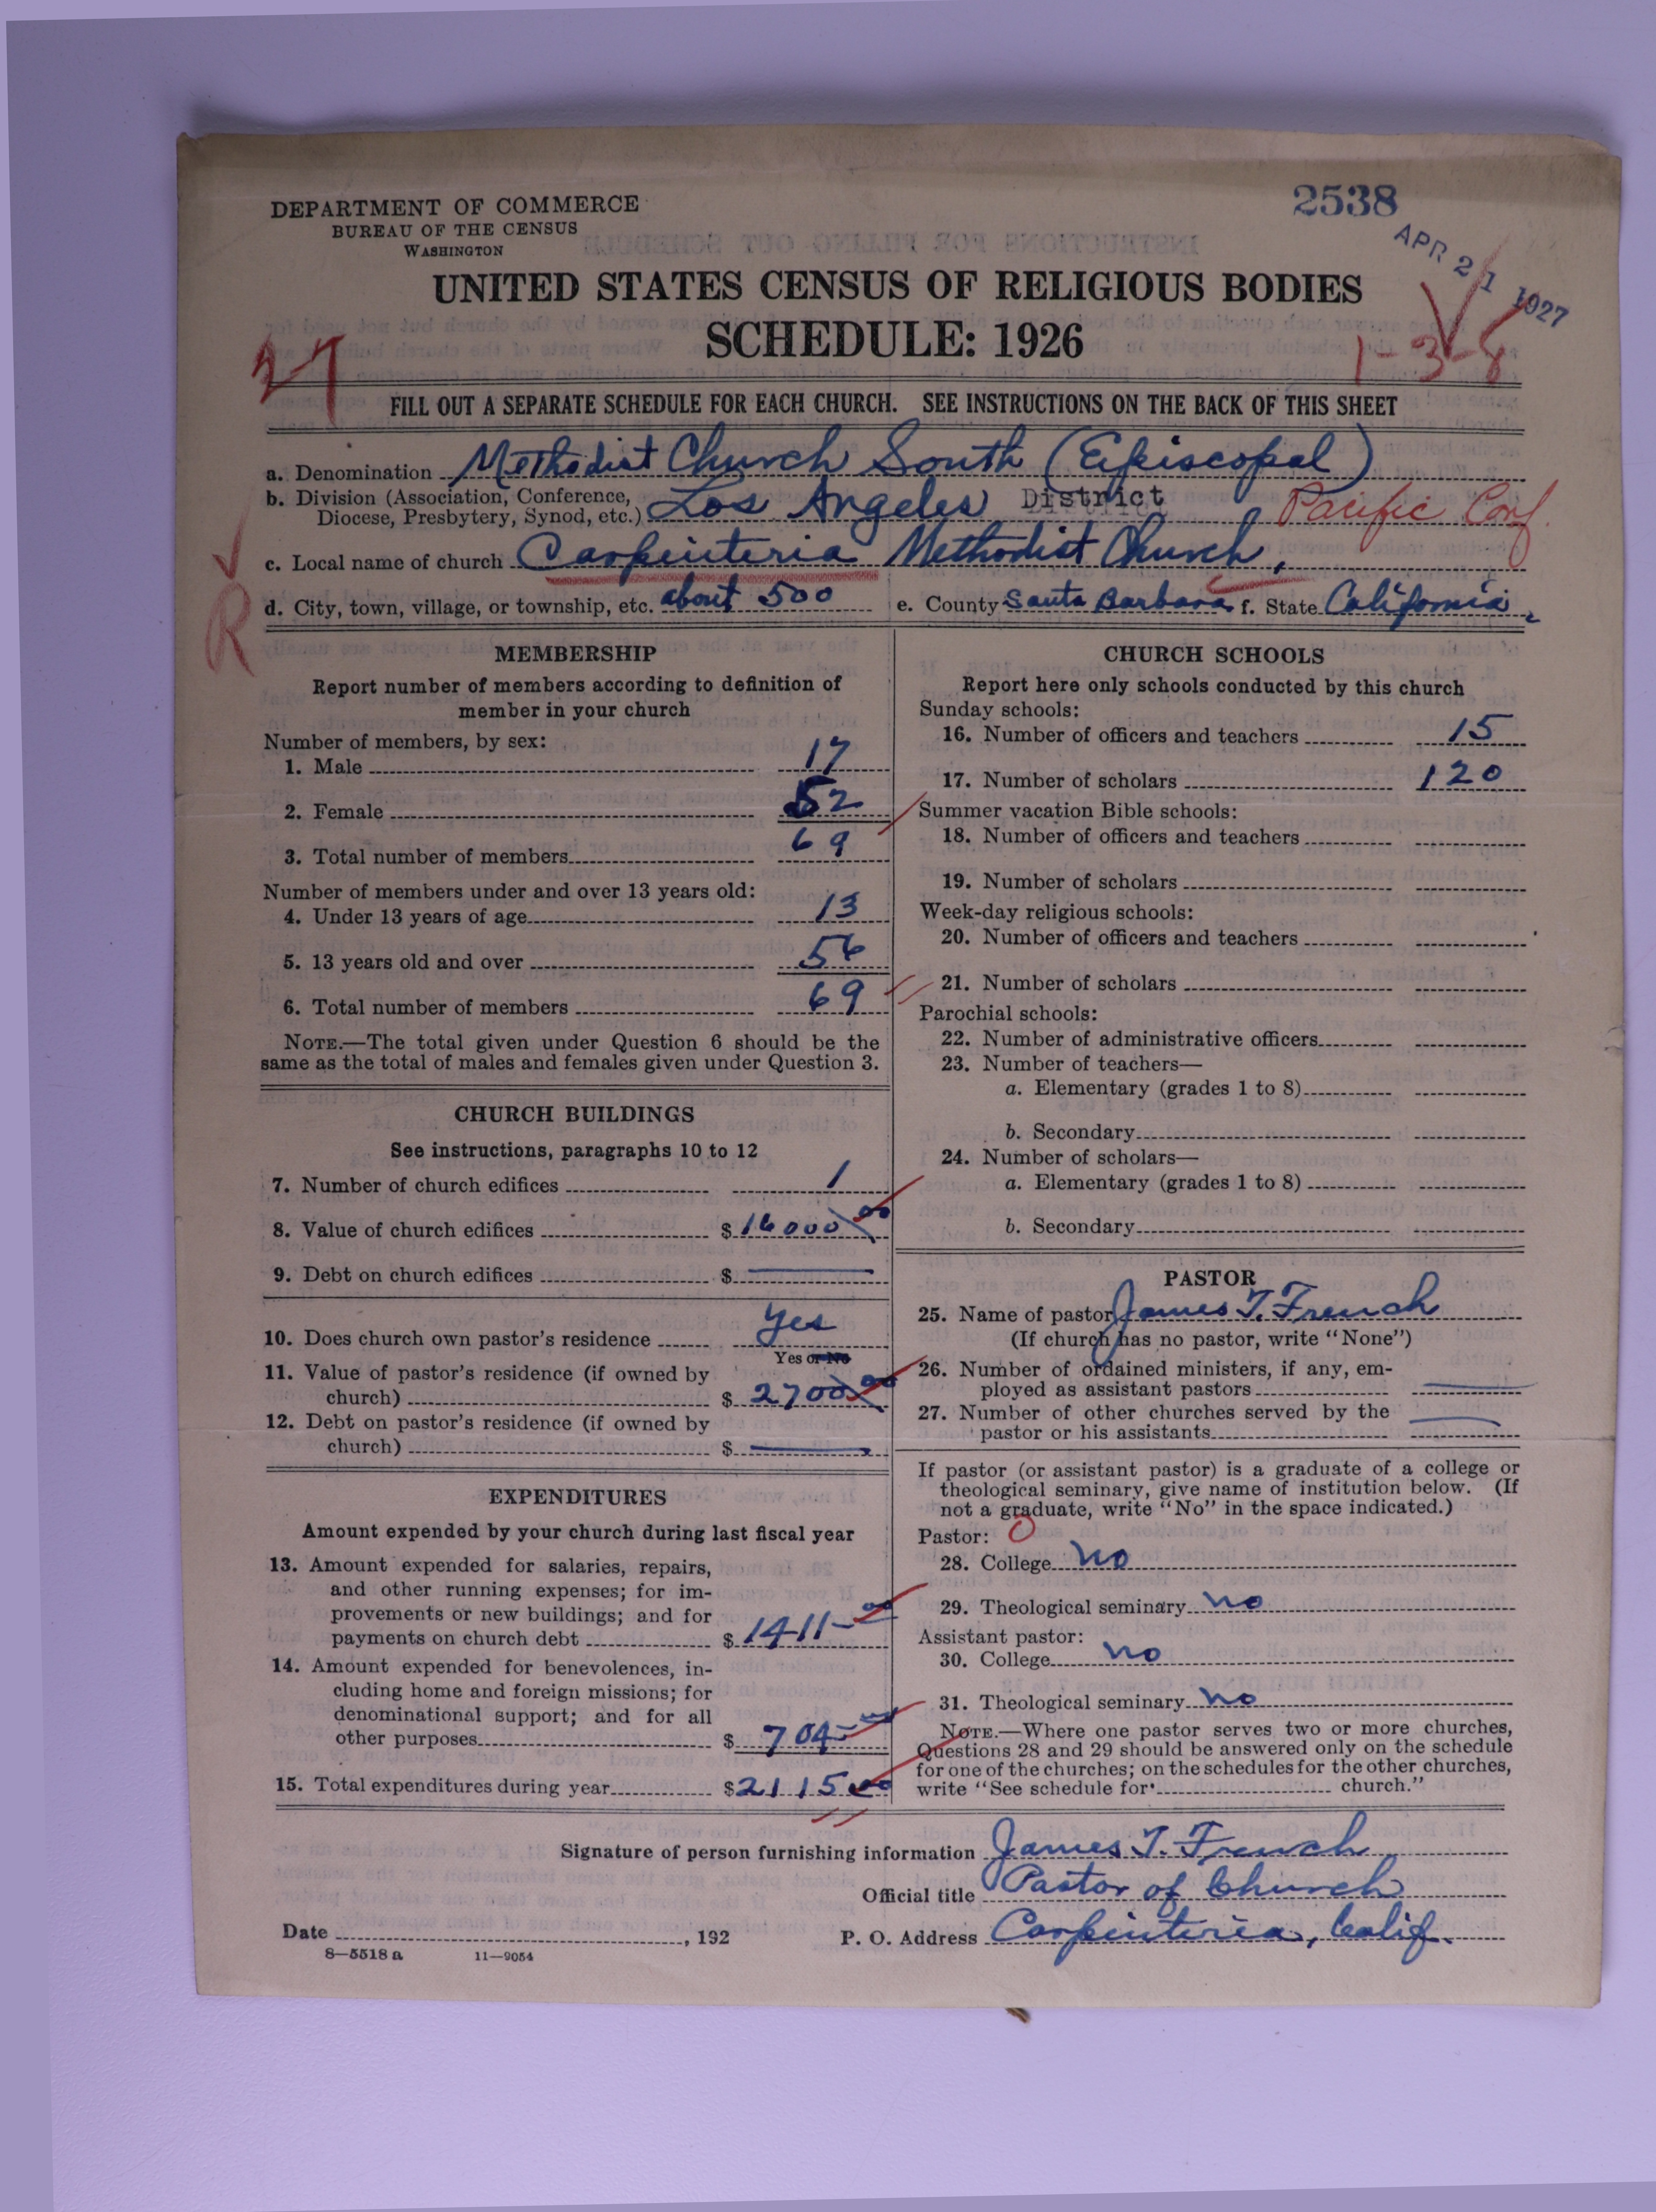 2538
APR 21 1927
DEPARTMENT OF COMMERCE
BUREAU OF THE CENSUS
WASHINGTON
UNITED STATES CENSUS OF RELIGIOUS BODIES
SCHEDULE: 1926
27
1-3-8
FILL OUT A SEPARATE SCHEDULE FOR EACH CHURCH. SEE INSTRUCTIONS ON THE BACK OF THIS SHEET
a. Denomination Methodist Church South (Episcopal)
b. Division (Association, Conference, Diocese, Presbytery, Synod, etc.) Los Angeles District Pacific Conf.
c. Local name of church Carpinteria Methodist Church,
R
d. City, town, village, or township, etc. about 500 e. County Santa Barbara f. State California,
MEMBERSHIP
Report number of members according to definition of
member in your church
Number of members, by sex:
1. Male 17
2. Female 52
3. Total number of members 69
Number of members under and over 13 years old:
4. Under 13 years of age 13
5. 13 years old and over 56
6. Total number of members 69
NOTE.—The total given under Question 6 should be the
same as the total of males and females given under Question 3.
CHURCH BUILDINGS
See instructions, paragraphs 10 to 12
7. Number of church edifices 1
8. Value of church edifices $16000 00
9. Debt on church edifices $ —
10. Does church own pastor's residence Yes
Yes or No
11. Value of pastor's residence (if owned by
church) $ 2700 00
12. Debt on pastor's residence (if owned by
church) $ —
EXPENDITURES
Amount expended by your church during last fiscal year
13. Amount expended for salaries, repairs,
and other running expenses; for im-
provements or new buildings; and for
payments on church debt $ 1411– 00
14. Amount expended for benevolences, in-
cluding home and foreign missions; for
denominational support; and for all
other purposes $ 704– 00
15. Total expenditures during year $2115 00
CHURCH SCHOOLS
Report here only schools conducted by this church
Sunday schools:
16. Number of officers and teachers 15
17. Number of scholars 120
Summer vacation Bible schools:
18. Number of officers and teachers
19. Number of scholars
Week-day religious schools:
20. Number of officers and teachers
21. Number of scholars
Parochial schools:
22. Number of administrative officers
23. Number of teachers—
a. Elementary (grades 1 to 8)
b. Secondary
24. Number of scholars—
a. Elementary (grades 1 to 8)
b. Secondary
PASTOR
25. Name of pastor James T. French
(If church has no pastor, write "None")
26. Number of ordained ministers, if any, em-
ployed as assistant pastors —
27. Number of other churches served by the
pastor or his assistants —
If pastor (or assistant pastor) is a graduate of a college or
theological seminary, give name of institution below. (If
not a graduate, write "No" in the space indicated.)
Pastor: O
28. College no
29. Theological seminary no
Assistant pastor:
30. College no
31. Theological seminary no
NOTE.—Where one pastor serves two or more churches,
Questions 28 and 29 should be answered only on the schedule
for one of the churches; on the schedules for the other churches,
write "See schedule for church."
Signature of person furnishing information James T. French
Official title Pastor of Church
Date , 192 P. O. Address Carpinteria, Calif.
8—5518 a 11—9054